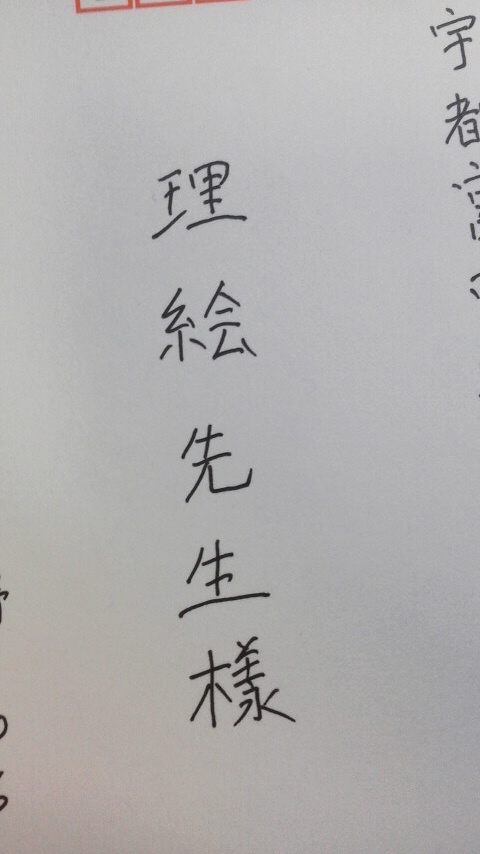 宇都宮
理絵先生様